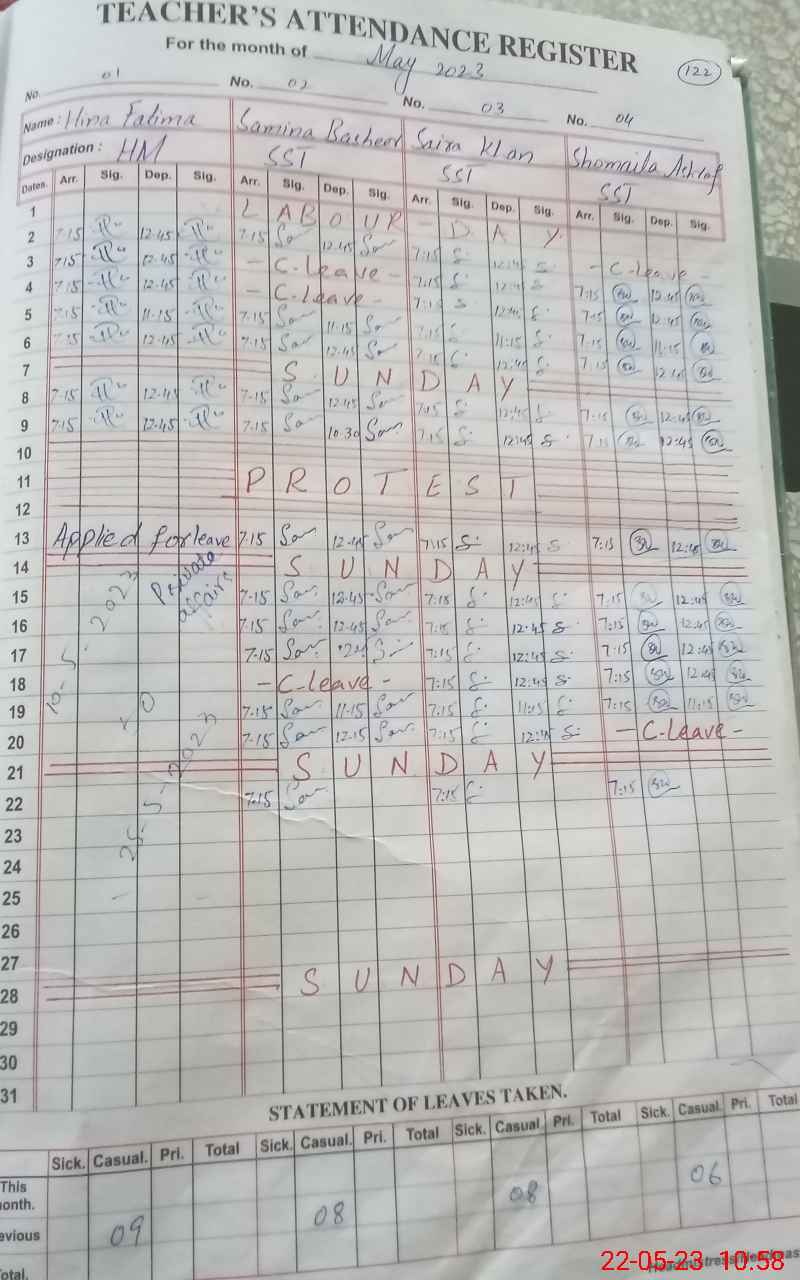 TEACHER'S ATTENDANCE REGISTER
For the month of May 2023
122
No. 01 No. 02 No. 03 No. 04
Name: Hina Fatima Samina Basheer Saira Khan Shomaila Ashraf
Designation: HM SST SST SST
Dates. Arr. Sig. Dep. Sig. Arr. Sig. Dep. Sig. Arr. Sig. Dep. Sig. Arr. Sig. Dep. Sig.
1 LABOUR - DAY
2 7:15 12:45 7:15 12:45 7:15 12:45 - C-leave -
3 7:15 12:45 - C-leave - 7:15 12:45 7:15 12:45
4 7:15 12:45 - C-leave - 7:15 12:45 7:15 12:45
5 7:15 11-15 7:15 11-15 7:15 11:15 7:15 11:15
6 7:15 12-45 7:15 12:45 7:15 12:45 7:15 12:45
7 SUNDAY
8 7:15 12:45 7:15 12:45 7:15 12:45 7:15 12:45
9 7:15 12:45 7:15 10:30 7:15 12:45 7:15 12:45
10
11 PROTEST
12
13 Applied for leave 7:15 12-45 7:15 12:45 7:15 12:45
Private affairs
14 SUNDAY
15 7-15 12-45 7:15 12:45 7:15 12:45
16 7:15 12-45 7:15 12:45 7:15 12:45
17 7:15 7:15 12:45 7:15 12:45
18 - C-leave - 7:15 12:45 7:15 12:45
19 7:15 11-15 7:15 11:15 7:15 11:15
20 7:15 12:15 7:15 12:45 - C-leave -
10-5-2023
TO
25-5-2023
21 SUNDAY
22 7:15 7:15 7:15
23
24
25
26
27
28 SUNDAY
29
30
31
STATEMENT OF LEAVES TAKEN.
Sick. Casual. Pri. Total Sick. Casual. Pri. Total Sick. Casual. Pri. Total Sick. Casual. Pri. Total
This
onth.
evious 09 08 08 06
otal.
22-05-23 10:58